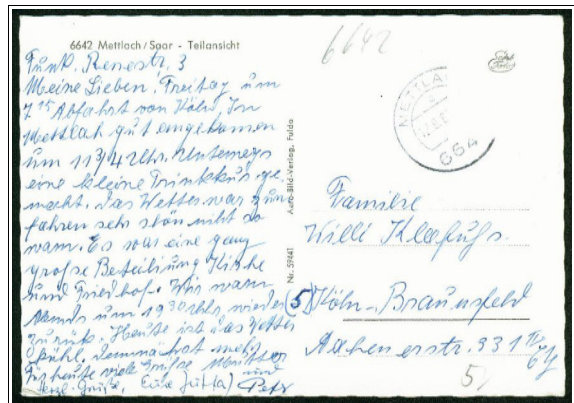 6642 Mettlach/Saar - Teilansicht
6642
Funk. Renestr. 3
Meine Lieben! Freitag um
7 15 Abfahrt von Köln. In
Mettlach gut angekomen
um 11 3/4 Uhr. Unterwegs
eine kleine Trinkkur ge-
macht. das Wetter war zum
fahren sehr schön nicht so
warm. Es war eine ganz
große Beteiliung Kirche
und Friedhof. Wir waren
Abends um 19 30 Uhr wieder
zurück. Heute ist das Wetter
kühl, demnächst mehr
Für heute viele Grüße Mutter
und
herzl. Grüße, Eure Jutta) Petr
Nr. 59441 Auto-Bild-Verlag, Fulda
METTLA
664
Familie
Willi
(5) Köln-Braunsfeld
Aachenerstr. 331
5